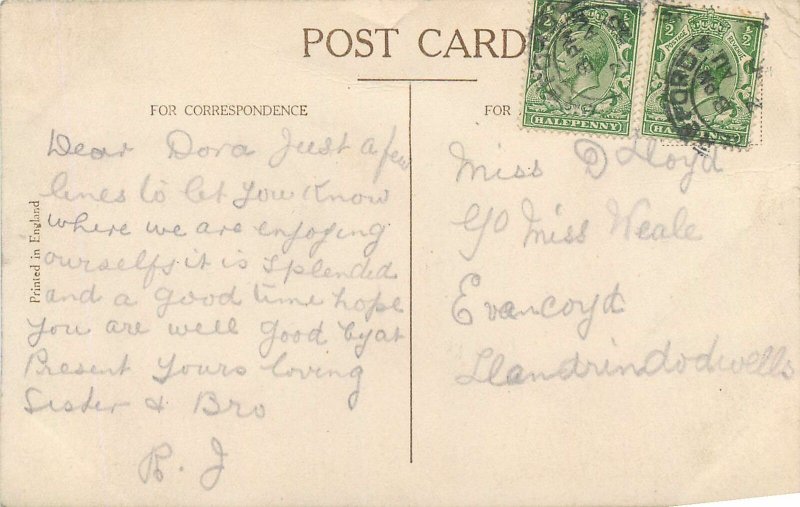 POST CARD
FOR CORRESPONDENCE
FOR
Printed in England
Dear Dora Just a few
lines to let you know
where we are enjoying
ourselfs it is splended
and a good time hope
you are well good by at
Present yours loving
Sister & Bro
R. J
Miss D Lloyd
c/o Miss Weale
Evancoyd
Llandrindodwells
HALFPENNY
HALFPENNY